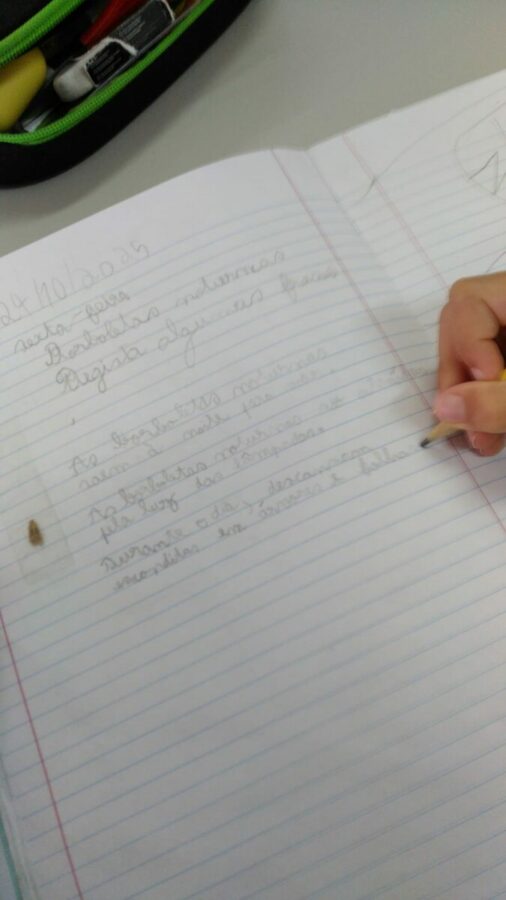 24/10/2025
sexta-feira
Borboletas noturnas
Regista algumas frases
As borboletas noturnas
saem à noite para
As borboletas noturnas são
pela luz das lâmpadas.
Durante o dia, descansam
escondidas em árvores e folhas